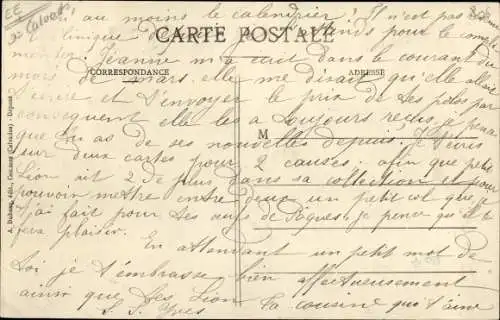 EE
au moins le calendrier ? Il n'est pas
clinique pour le
CARTE POSTALE
mon Jeanne m'a écrit dans le courant du
CORRESPONDANCE
ADRESSE
mois de mars, elle me disait qu'elle allait
t'écrire et t'envoyer le prix de tes par
conséquent elle les a toujours reçus, je pense
M
que tu as de ses nouvelles depuis. Je t'écris
sur deux cartes pour 2 causes: afin que petit
Lion ait 2 de plus dans sa collection et pour
pouvoir mettre entre deux un petit que je
t'ai fait pour tes œufs de Pâques, je pense qu'il te
fera plaisir. En attendant un petit mot de
toi je t'embrasse bien affectueusement
ainsi que tes Lion la cousine qui t'aime
Yves
A. Dubosq, édit., (Calvados) - Déposé